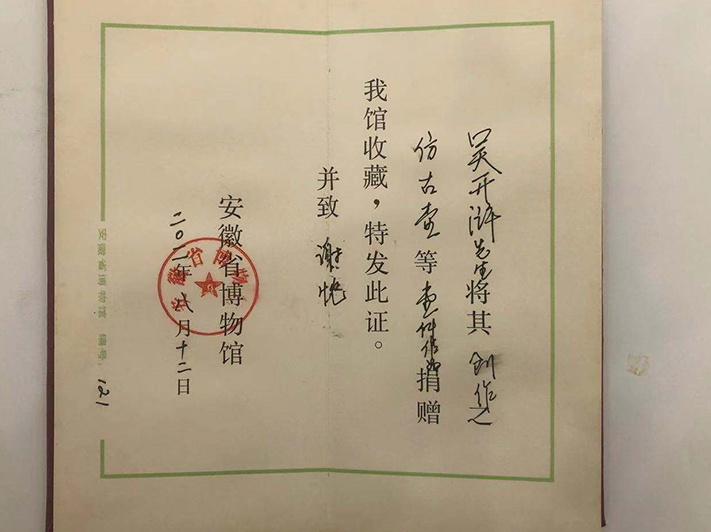 吴开浒先生将其创作之
仿古壶等壹件作品捐赠
我馆收藏，特发此证。
并致谢忱
安徽省博物馆
二〇一一年八月十二日
安徽省博物馆 编号